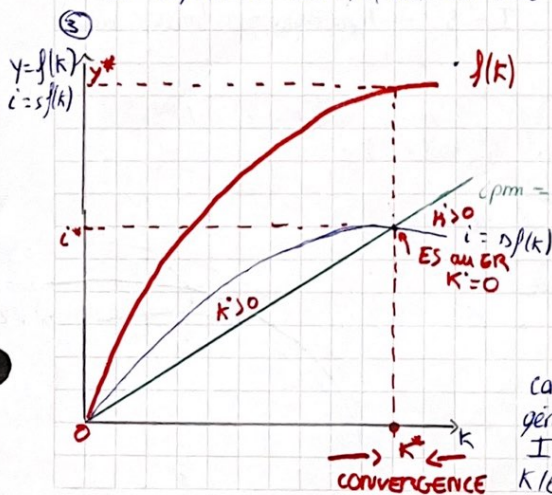 ③
y=f(k)
y*
i=sf(k)
f(k)
cpm =
k̇>0
i*
i = sf(k)
ES au ER
k̇=0
k̇>0
0
K*
K
CONVERGENCE
I
K/